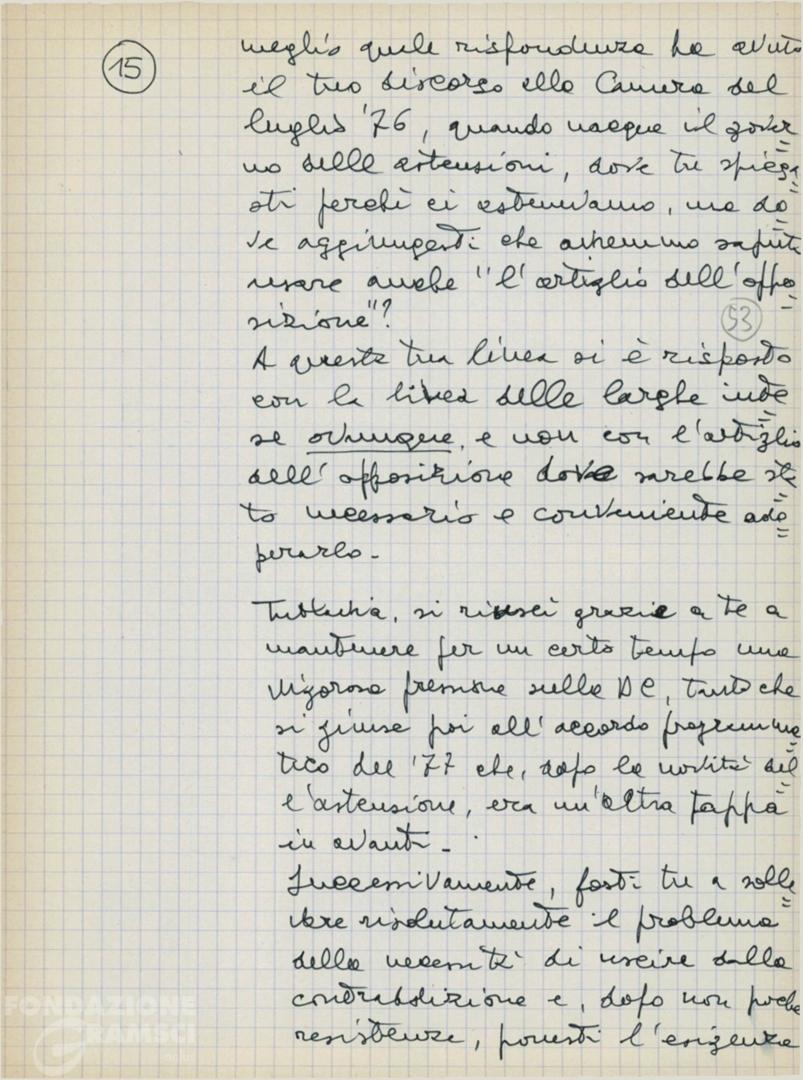 15
meglio quale rispondenza ha avuto
il tuo discorso alla Camera del
luglio '76, quando nacque il gover=
no delle astensioni, dove tu spiega=
sti perchè ci astenevamo, ma do=
ve aggiungesti che avremmo saputo
usare anche "l'artiglio dell'oppo=
sizione"?
53
A questa tua linea si è risposto
con la linea delle larghe inte=
se ovunque, e non con l'artiglio
dell'opposizione dove sarebbe sta=
to necessario e conveniente ado=
perarlo -
Tuttavia, si riuscì grazie a te a
mantenere per un certo tempo una
vigorosa pressione sulla DC, tanto che
si giunse poi all'accordo programma=
tico del '77 che, dopo la novità del=
l'astensione, era un'altra tappa
in avanti -
Successivamente, fosti tu a solle=
vare risolutamente il problema
della necessità di uscire dalla
contraddizione e, dopo non poche
resistenze, ponesti l'esigenza
FONDAZIONE
GRAMSCI